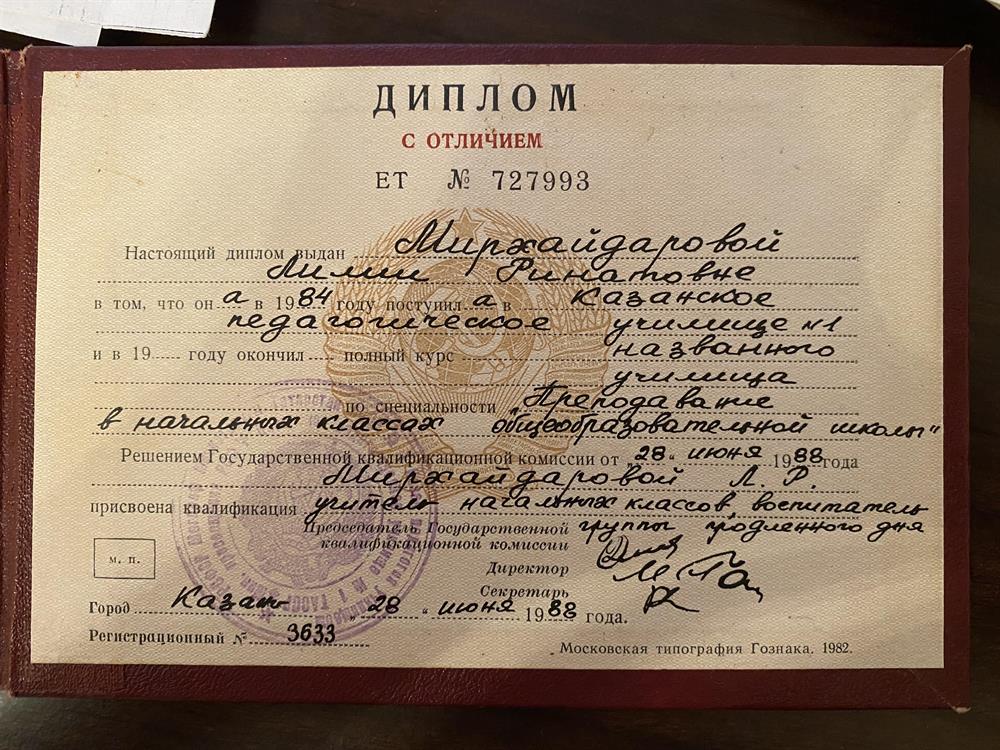 ДИПЛОМ
С ОТЛИЧИЕМ
ЕТ № 727993
Настоящий диплом выдан Мирхайдаровой
Лилии Ринатовне
в том, что он а в 1984 году поступил а в Казанское
педагогическое училище №1
и в 19 году окончил полный курс названного
училища
по специальности "Преподавание
в начальных классах общеобразовательной школы"
Решением Государственной квалификационной комиссии от "28" июня 1988 года
Мирхайдаровой Л. Р.
присвоена квалификация учитель начальных классов, воспитатель
группы продленного дня
Председатель Государственной
квалификационной комиссии
Директор
м. п.
Секретарь
Город Казань "28" июня 1988 года.
Регистрационный № 3633
Московская типография Гознака. 1982.